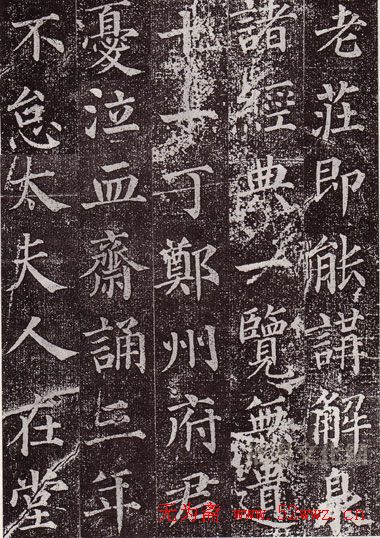 老莊即能講解臮
諸經典一覽無遺
十一丁鄭州府君
憂泣血齋誦三年
不怠太夫人在堂
无为斋 www.51wwz.cn